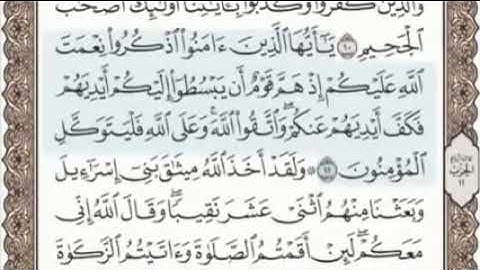 وَالَّذِينَ كَفَرُوا۟ وَكَذَّبُوا۟ بِـَٔايَـٰتِنَآ أُو۟لَـٰٓئِكَ أَصْحَـٰبُ
ٱلْجَحِيمِ ١٠ يَـٰٓأَيُّهَا ٱلَّذِينَ ءَامَنُوا۟ ٱذْكُرُوا۟ نِعْمَتَ
ٱللَّهِ عَلَيْكُمْ إِذْ هَمَّ قَوْمٌ أَن يَبْسُطُوٓا۟ إِلَيْكُمْ أَيْدِيَهُمْ
فَكَفَّ أَيْدِيَهُمْ عَنكُمْ ۖ وَٱتَّقُوا۟ ٱللَّهَ ۚ وَعَلَى ٱللَّهِ فَلْيَتَوَكَّلِ
ٱلْمُؤْمِنُونَ ١١ ۞ وَلَقَدْ أَخَذَ ٱللَّهُ مِيثَـٰقَ بَنِىٓ إِسْرَٰٓءِيلَ
وَبَعَثْنَا مِنْهُمُ ٱثْنَىْ عَشَرَ نَقِيبًا ۖ وَقَالَ ٱللَّهُ إِنِّى
مَعَكُمْ ۖ لَئِنْ أَقَمْتُمُ ٱلصَّلَوٰةَ وَءَاتَيْتُمُ ٱلزَّكَوٰةَ
الحزب
١٢